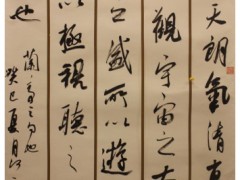 天朗氣清
觀宇宙之
之盛所以遊
以極視聽之
也
癸巳夏月